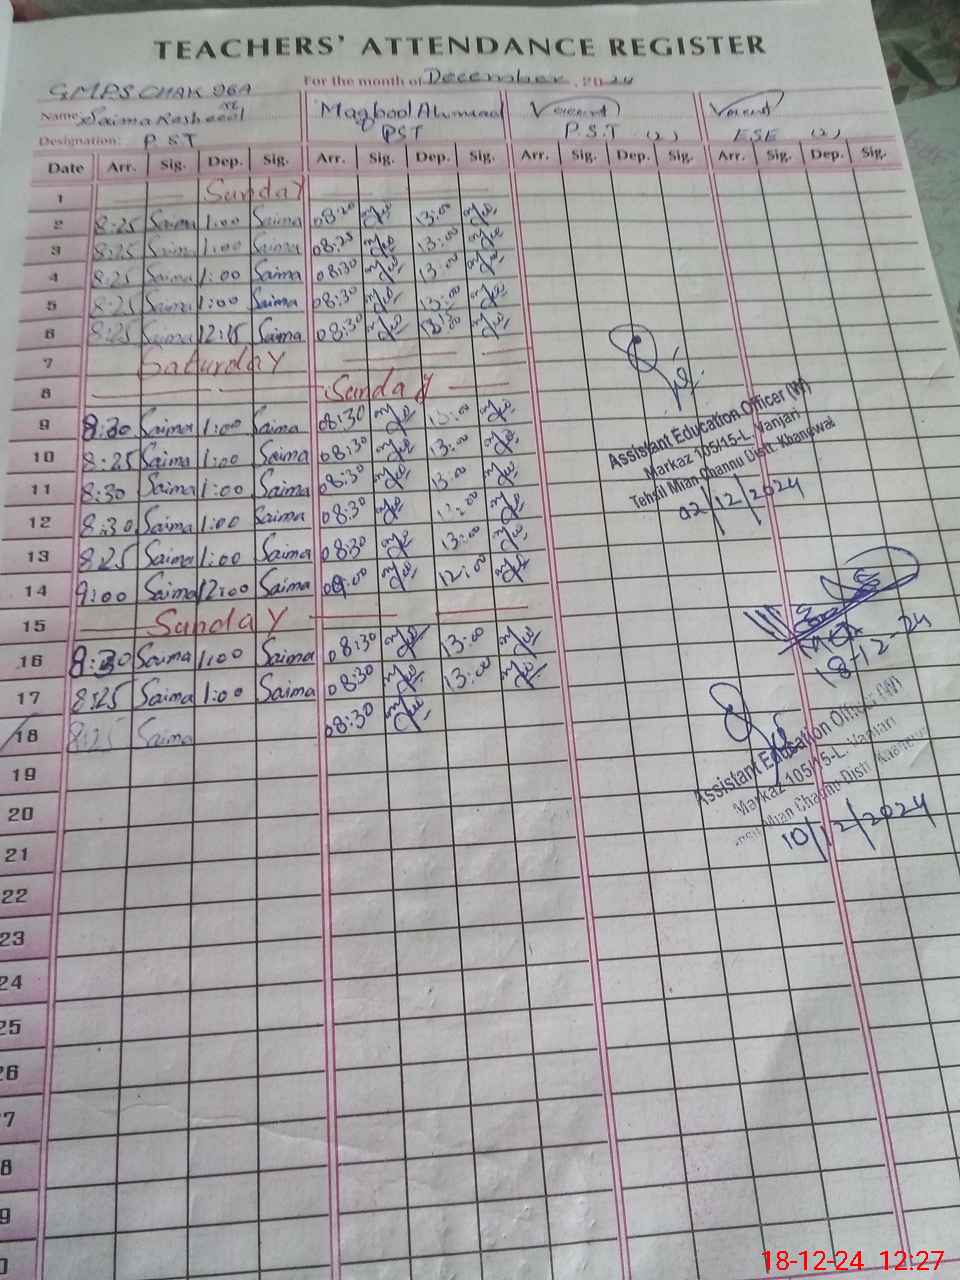 TEACHERS' ATTENDANCE REGISTER
For the month of December, 2024
G.M.P.S. CHAK 96A
Name Saima Rasheed Maqbool Ahmad Vacant Vacant
Designation: P.S.T PST P.S.T (2) ESE (2)
Date Arr. Sig. Dep. Sig. Arr. Sig. Dep. Sig. Arr. Sig. Dep. Sig. Arr. Sig. Dep. Sig.
1 Sunday
2 8:25 Saima 1:00 Saima 08:20 13:00
3 8:25 Saima 1:00 Saima 08:25 13:00
4 8:25 Saima 1:00 Saima 08:30 13:00
5 8:25 Saima 1:00 Saima 08:30 13:00
6 8:25 Saima 12:15 Saima 08:30
7 Saturday
8 Sunday
9 8:30 Saima 1:00 Saima 08:30 13:00
10 8:25 Saima 1:00 Saima 08:30 13:00
11 8:30 Saima 1:00 Saima 08:30 13:00
12 8:30 Saima 1:00 Saima 08:30
13 8:25 Saima 1:00 Saima 08:30 13:00
14 9:00 Saima 12:00 Saima 09:00 12:00
15 Sunday
16 8:30 Saima 1:00 Saima 08:30 13:00
17 8:25 Saima 1:00 Saima 08:30 13:00
18 8:25 Saima 08:30
19
20
21
22
23
24
25
26
7
8
9
0
Assistant Education Officer (W)
Markaz 105/15-L. Vanjari
Tehsil Mian Channu Distt: Khanewal
02/12/2024
18-12-24
Assistant Education Officer (W)
Markaz 105/15-L. Vanjari
Mian Channu Distt: Khanewal
10/12/2024
18-12-24 12:27